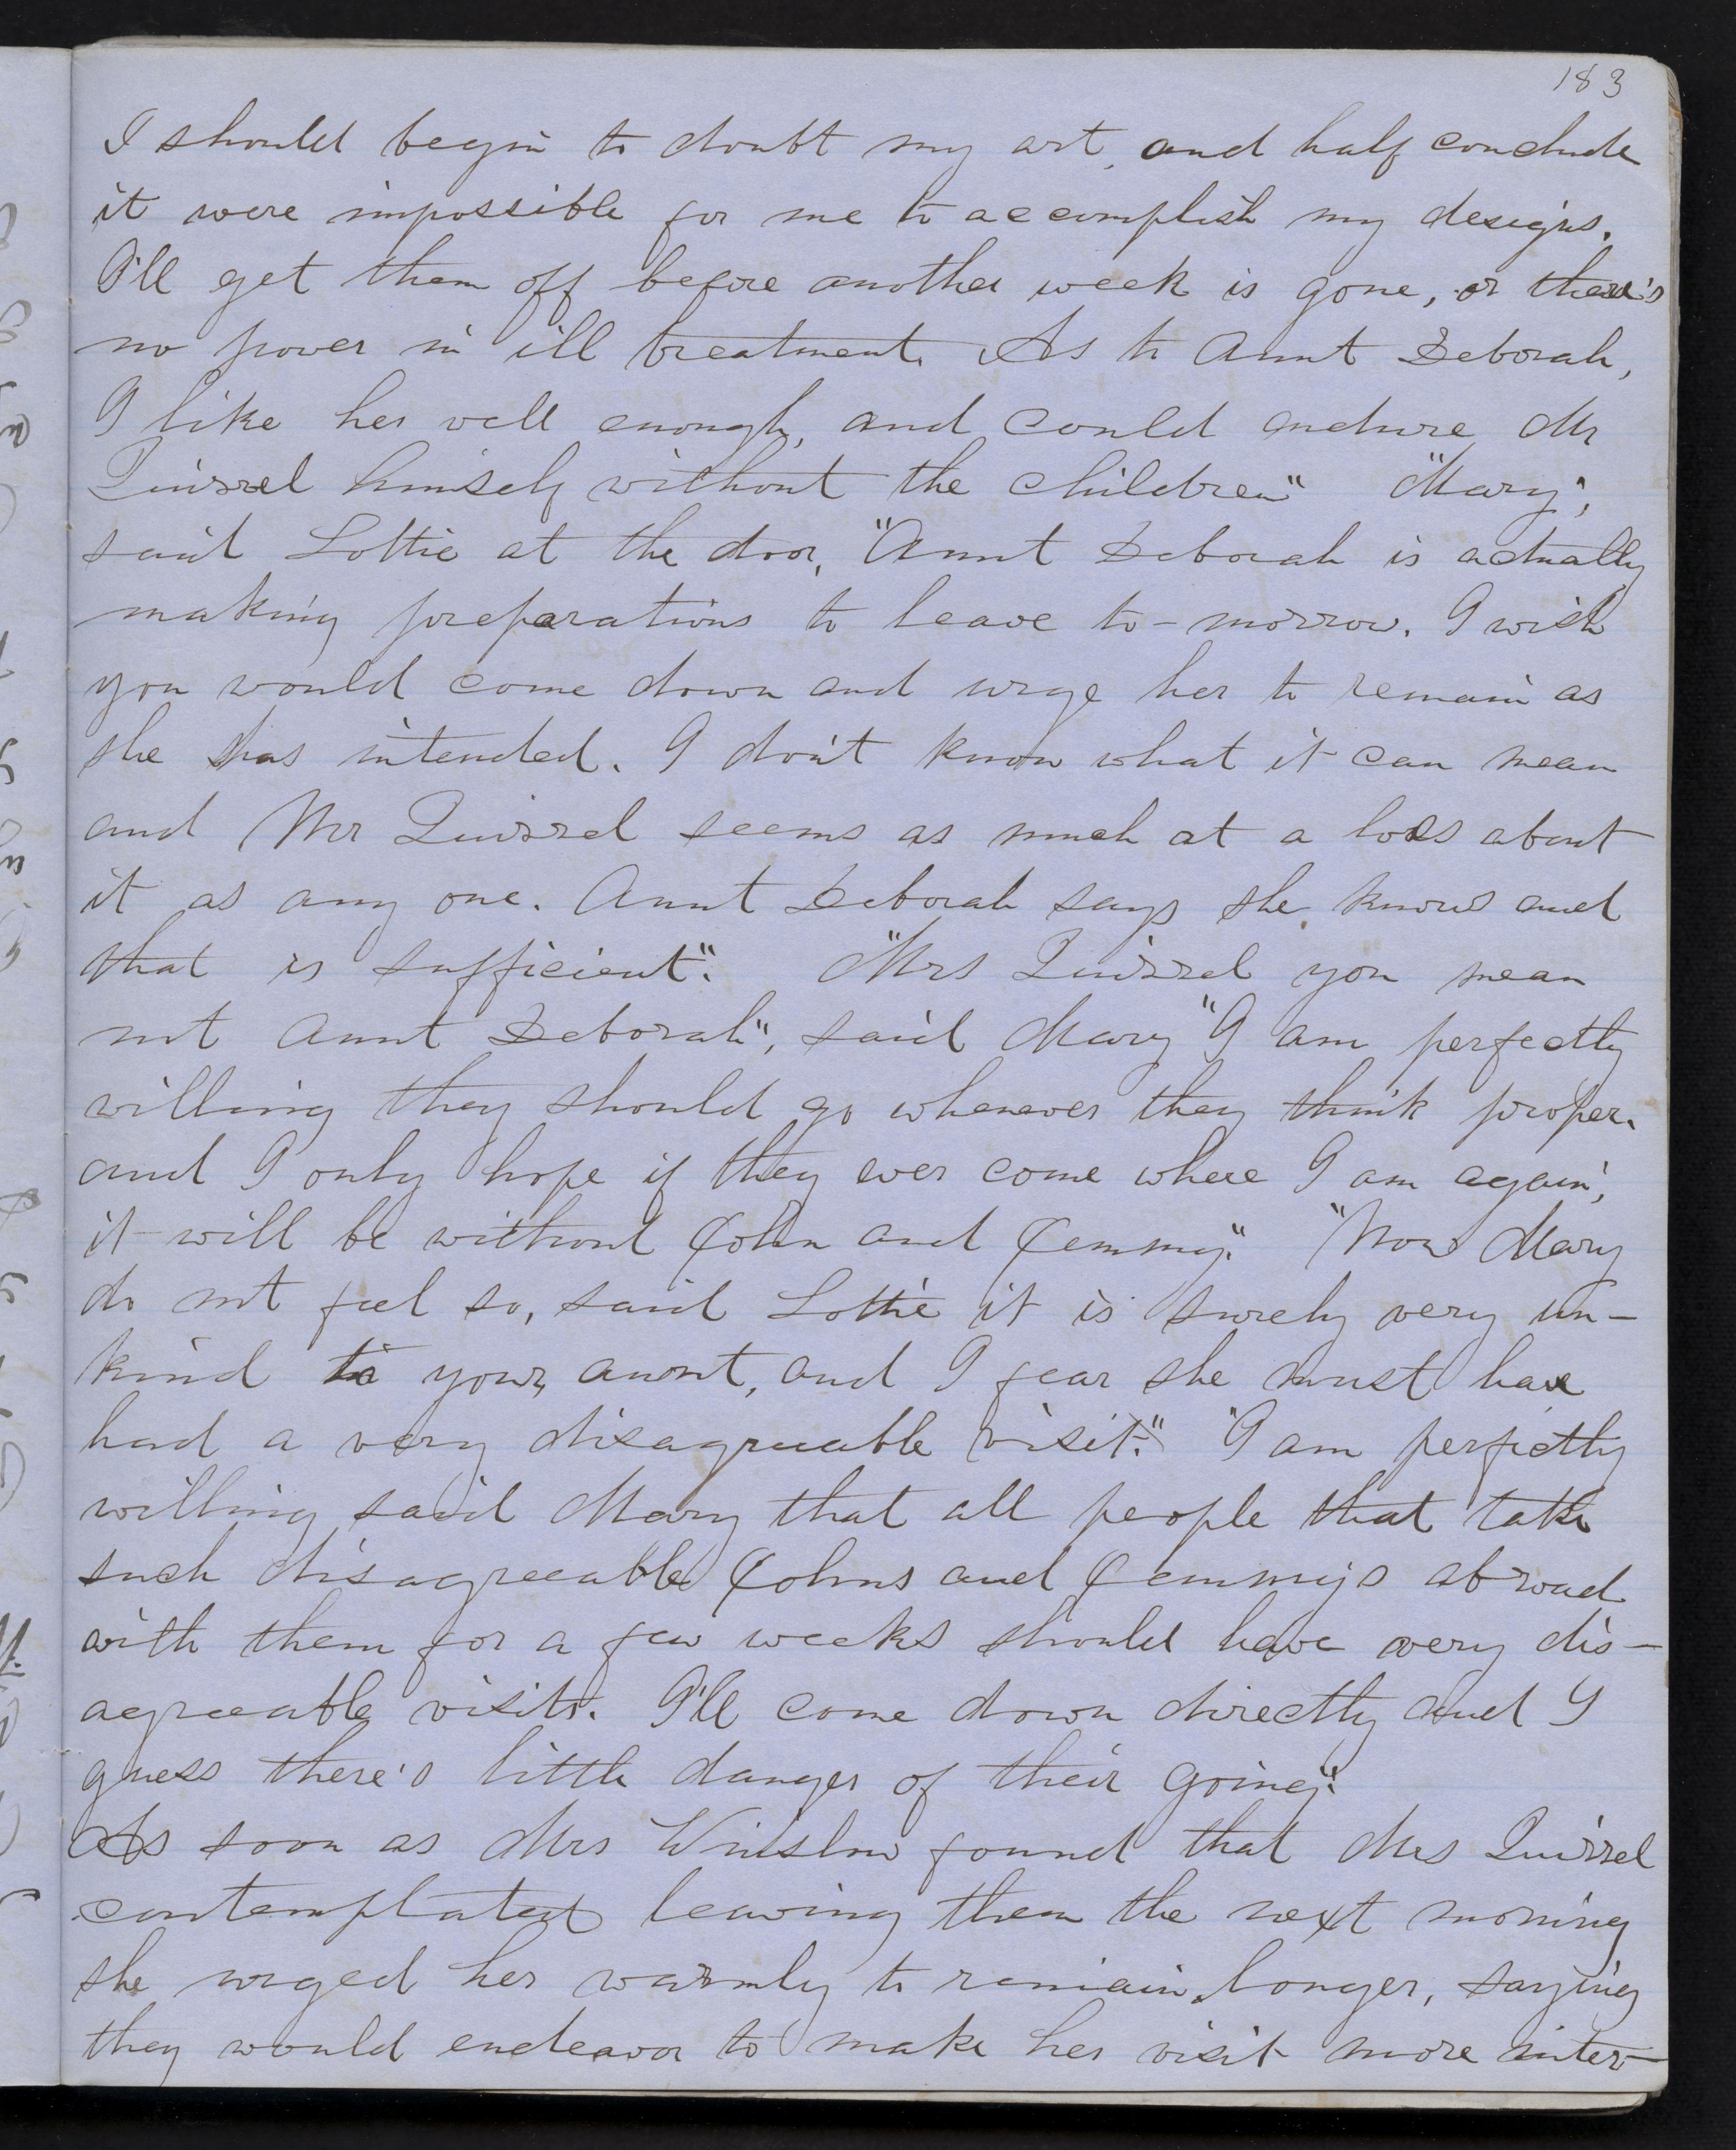 183
I should begin to doubt my art, and half conclude
it were impossible for me to accomplish my designs.
I'll get them off before another week is gone, or there's
no power in ill treatment. As to Aunt Deborah,
I like her well enough, and could endure Mr
Quirrel himself without the children" "Mary",
said Lottie at the door, "Aunt Deborah is actually
making preparations to leave to-morrow. I wish
you would come down and urge her to remain as
she has intended. I don't know what it can mean
and Mr Quirrel seems as much at a loss about
it as any one. Aunt Deborah says she knows and
that is sufficient". "Mrs Quirrel you mean
not Aunt Deborah", said Mary "I am perfectly
willing they should go whenever they think proper.
and I only hope if they ever come where I am again,
it will be without John and Jemmy." "Now Mary
do not feel so, said Lottie it is surely very un-
kind to your aunt, and I fear she must have
had a very disagreeable visit." "I am perfectly
willing said Mary that all people that take
such disagreeable Johns and Jemmys abroad
with them for a few weeks should have very dis-
agreeable visits. I'll come down directly and I
guess there's little danger of their going".
As soon as Mrs Winslow found that Mrs Quirrel
contemplated leaving them the next morning
she urged her warmly to remain longer, saying
they would endeavor to make her visit more inter-